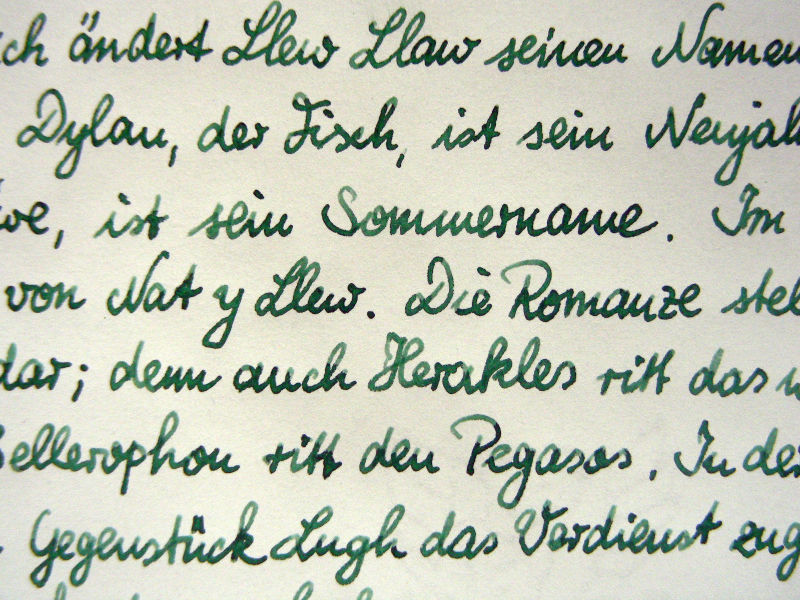 ich ändert Llew Llaw seinen Namen
Dylan, der Fisch, ist sein Neujah
we, ist sein Sommername. Im
von Nat y Llew. Die Romanze stel
dar; denn auch Herakles ritt das w
Bellerophon ritt den Pegasos. In der
Gegenstück Lugh das Verdienst zug